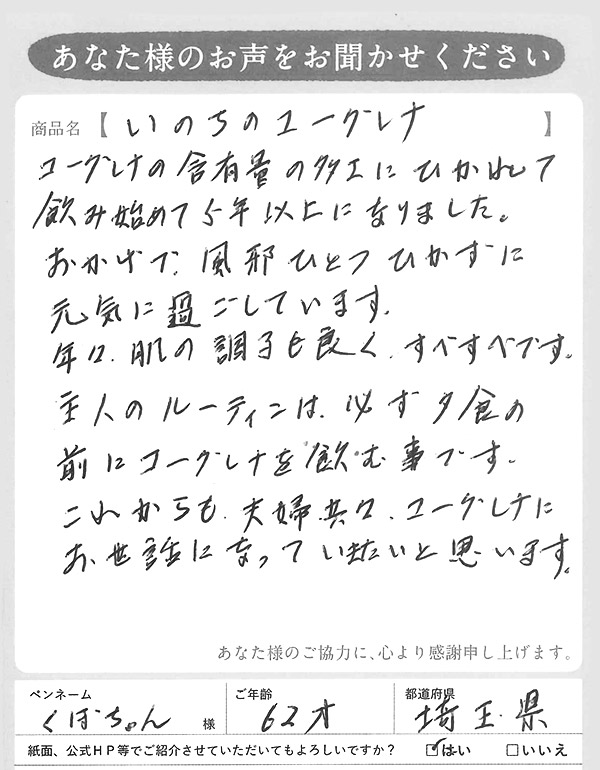 あなた様のお声をお聞かせください
商品名【いのちのユーグレナ】
ユーグレナの含有量の多さにひかれて
飲み始めて5年以上になりました。
おかげで、風邪ひとつひかずに
元気に過ごしています。
年々、肌の調子も良く、すべすべです。
主人のルーティンは、必ず夕食の
前にユーグレナを飲む事です。
これからも、夫婦共々、ユーグレナに
お世話になっていきたいと思います。
あなた様のご協力に、心より感謝申し上げます。
ペンネーム ご年齢 都道府県
くぼちゃん 様 62才 埼玉県
紙面、公式HP等でご紹介させていただいてもよろしいですか? ☑はい □いいえ